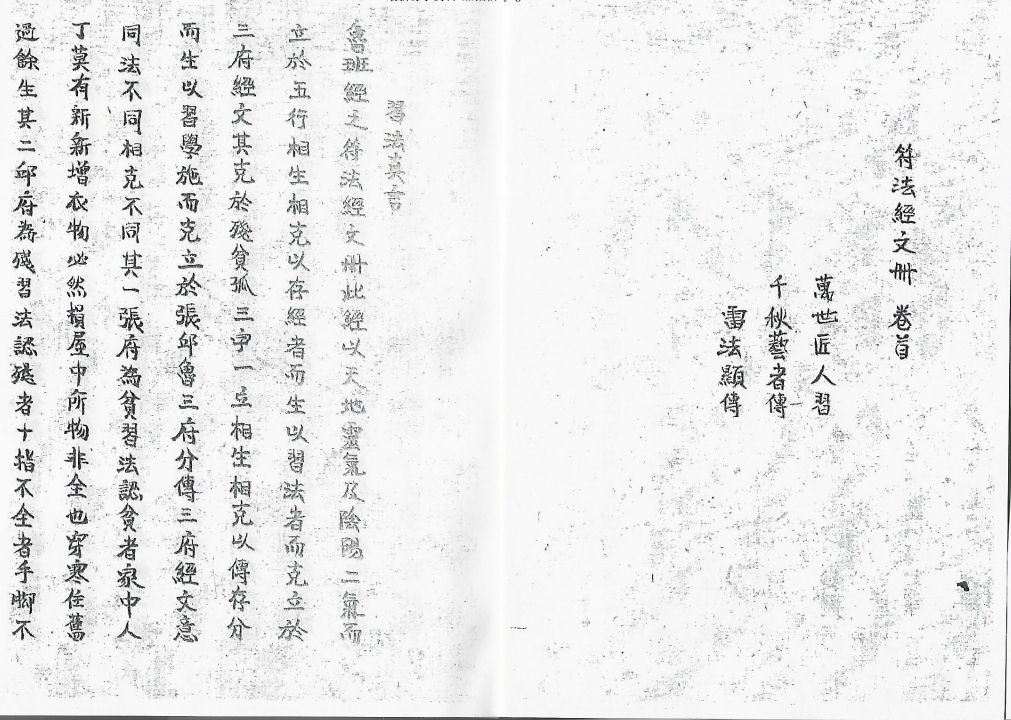 符法經文冊 卷首
萬世匠人習
千秋藝者傳
雷法顯傳
習法真言
魯班經之符法經文冊此經以天地靈氣及陰陽二氣而
立於五行相生相克以存經者而生以習法者而克立於
三府經文其克於殘貧孤三字一立相生相克以傳存分
而生以習學施而克立於張邱魯三府分傳三府經文意
同法不同相克不同其一張府為貧習法認貧者家中人
丁莫有新新增衣物必然損屋中所物非全也穿寒住舊
過餘生其二邱府為殘習法認殘者十指不全者手脚不